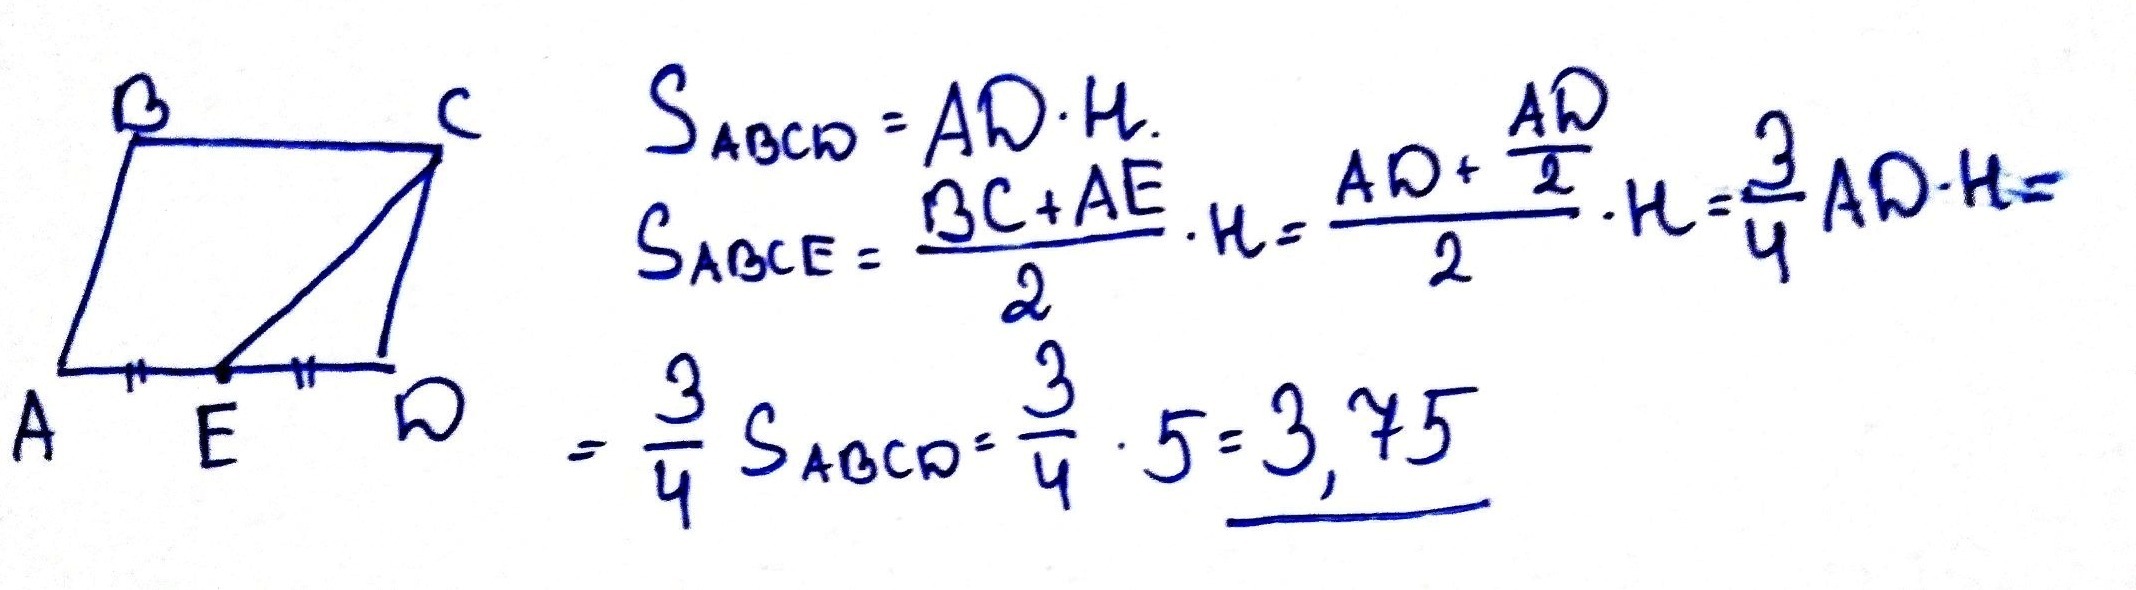 B C
A E D
S_ABCD = AD · H.
S_ABCE = (BC + AE)/2 · H = (AD + AD/2)/2 · H = 3/4 AD · H =
= 3/4 S_ABCD = 3/4 · 5 = 3,75